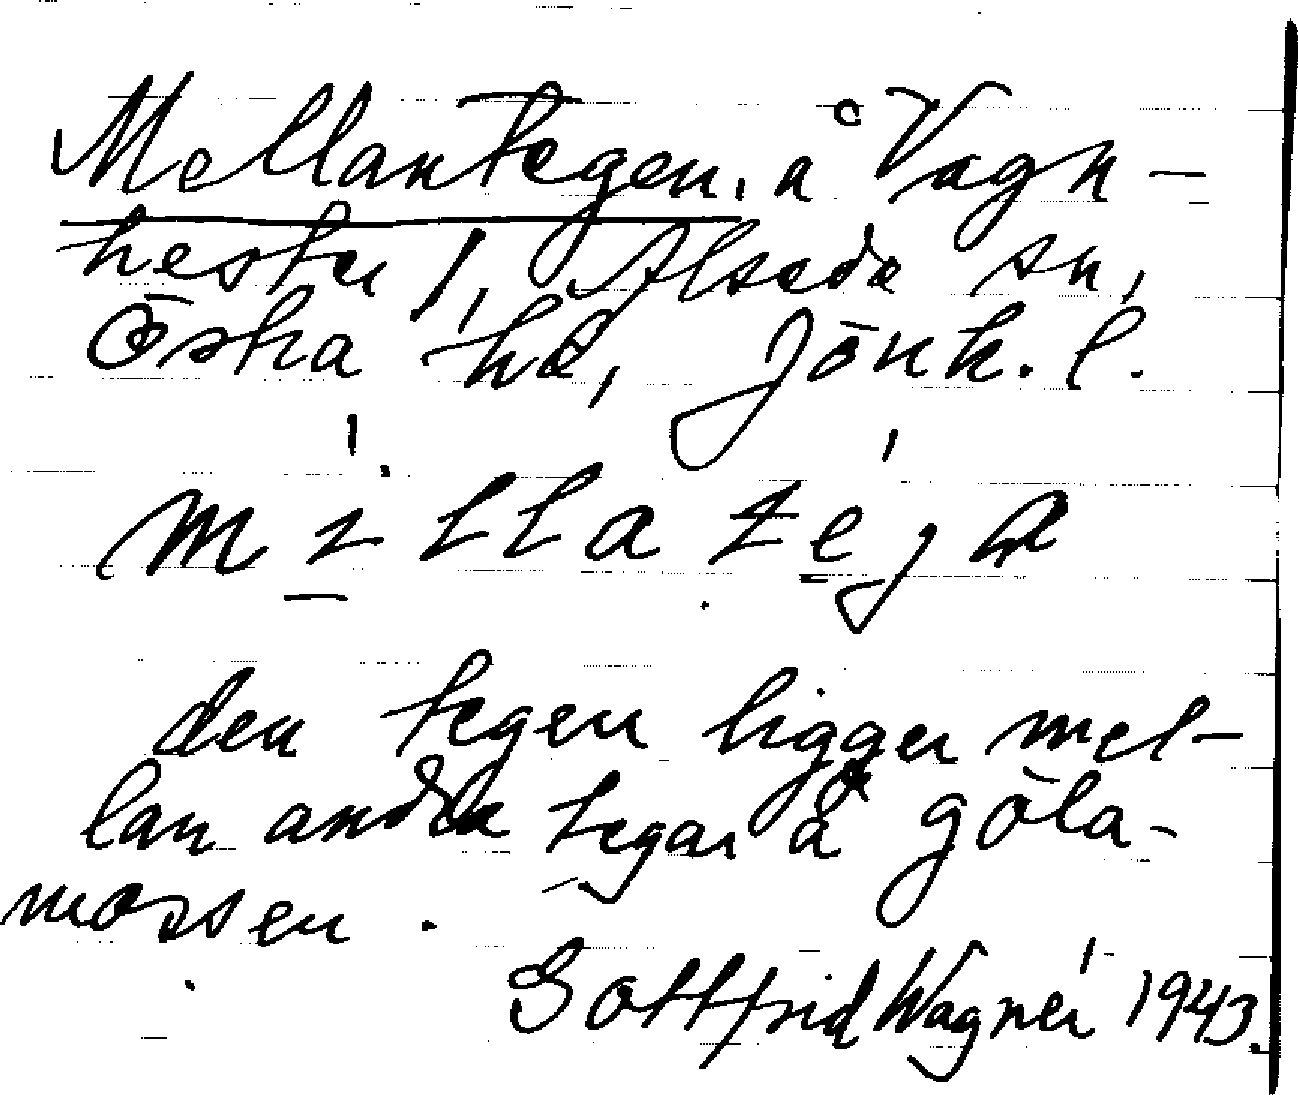 Mellantegen. å Vagn-
hester 1, Alseda sn,
Östra hd, Jönk. l.
den tegen ligger mel-
lan andra tegar å göla-
mossen.
Gottfrid Wagnér 1943.